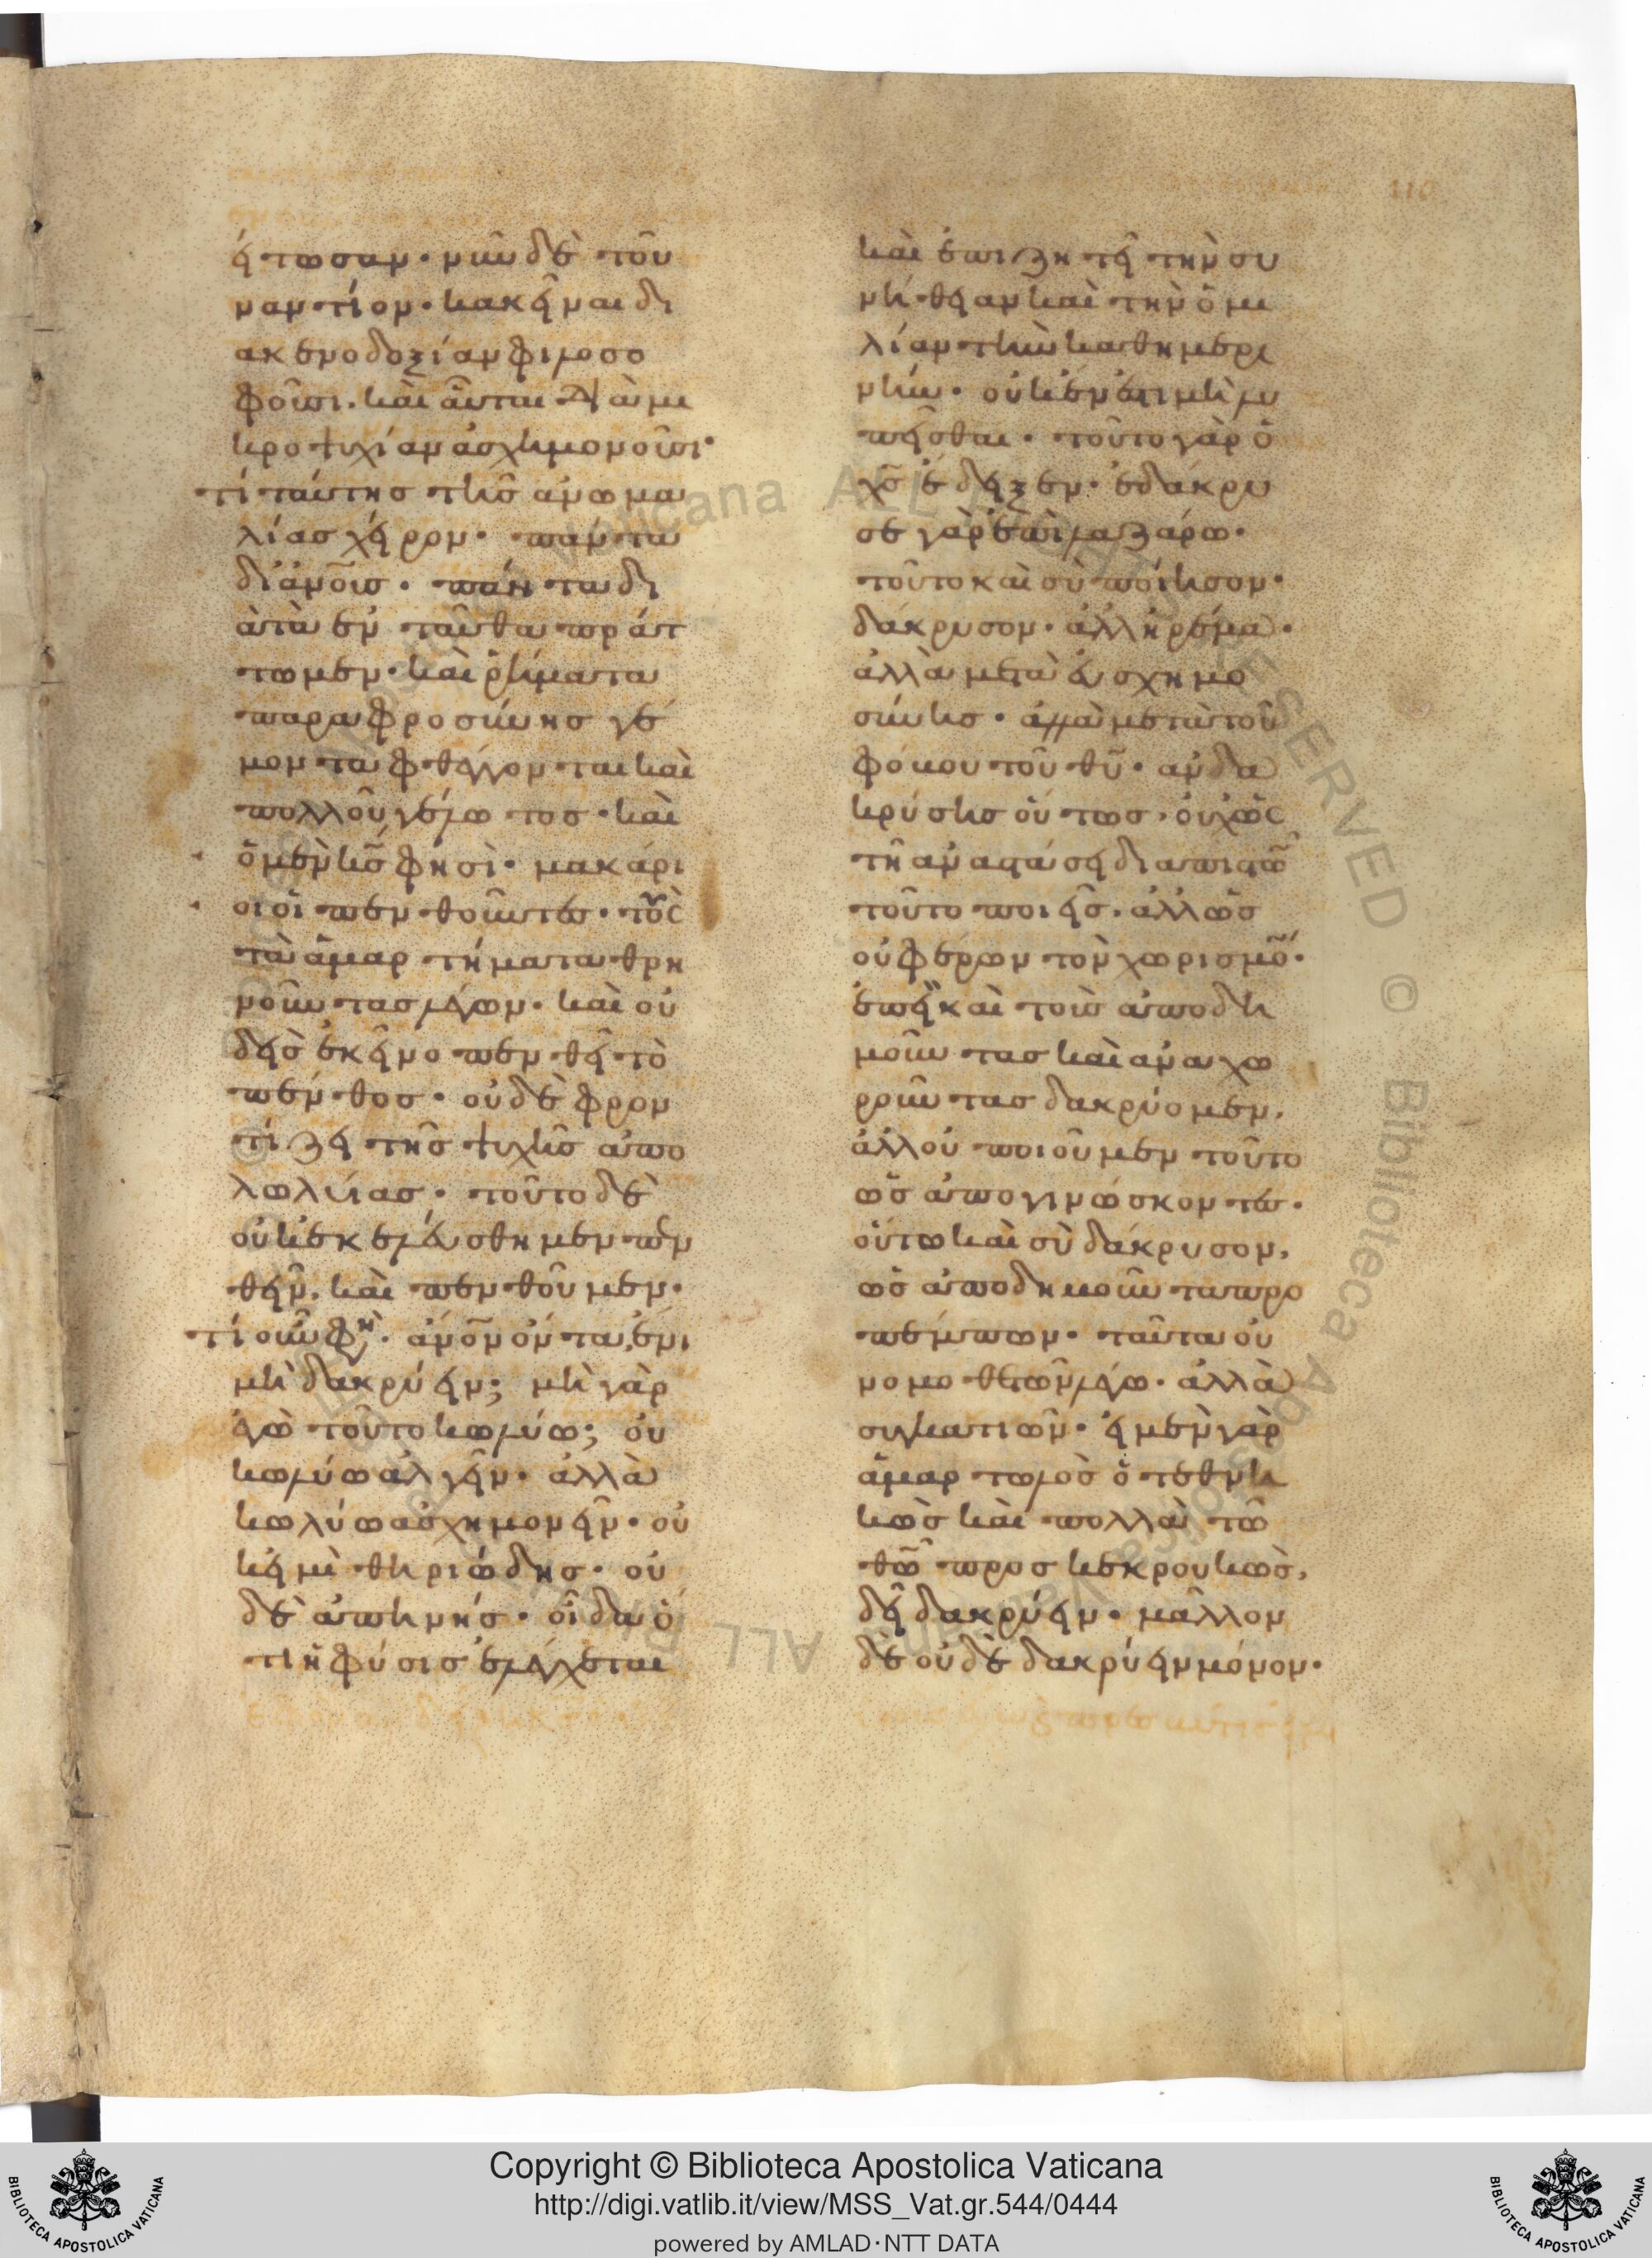 είτωσαν· νῦν δὲ τοῦ
ναντίον· κακεῖναι δι
ακενοδοξίαν φιλοσο
φοῦσι. καὶ αὗται διὰ μι
κροψυχίαν ἀσχημονοῦσι·
τί ταύτης τῆς ἀνωμα
λίας χεῖρον· πάντα
δι ἀνο̅υς· πάντα δι
ὰτὰ ἐνταῦθα πράτ
τωμεν· καὶ ῥήματα
παραφροσύνης γέ
μοντα φθέγγονται καὶ
πολλοῦ γέλωτος· καὶ
ὁ μὲν κ̅ς φησὶ· μακάρι
οι οἱ πενθοῦντες· τοὺς
τὰ ἁμαρτήματα θρη
νοῦντας λέγων· καὶ οὐ
δεὶς ἐκεῖνο πενθεῖ τὸ
πένθος· οὐδὲ φρον
τίζει τῆς ψυχῆς ἀπο
λωλυίας· τοῦτο δὲ
οὐκ ἐκελεύσθημεν πεν
θεῖν. καὶ πενθοῦμεν·
τί οὖν φη· ἄνο̅ν ὄντα ἔνι
μὴ δακρύειν; μὴ γὰρ
ἐγὼ τοῦτο κωλύω; οὐ
κωλύω ἀλγεῖν· ἀλλὰ
κωλύω ἀσχημονεῖν· οὐ
κ εἰμὶ θηριώδης· οὐ
δὲ ἀπηνής· οἶδα ὅ
τι ἡ φύσις ἐλέγχεται
καὶ ἐπιζητεῖ τὴν συ
νήθειαν καὶ τὴν ὁμι
λίαν τὴν καθημερι
νήν· οὐκ ἔνἐστι μὴ λυ
πεῖσθαι· τοῦτο γὰρ ὁ
χ̅ς ἔδειξεν· ἐδάκρυ
σε γὰρ ἐπὶ λαζάρω·
τοῦτο καὶ σὺ ποίησον·
δάκρυσον· ἀλλ ἠρέμα·
ἀλλὰ μετὰ εὐσχημο
σύνης· ἀλλὰ μετὰ τοῦ
φόβου τοῦ θ̅υ· ἂν δα
κρύσης οὕτως, οὐχ ὡς
τῆ ἀναστάσει διαπιστῶ
τοῦτο ποιεῖς. ἀλλ ὡς
οὐ φέρων τὸν χωρισμό·
ἐπεὶ καὶ τοὺς ἀποδη
μοῦντας καὶ ἀναχω
ροῦντας δακρύομεν,
ἀλλ οὐ ποιοῦμεν τοῦτο
ὡς ἀπογινώσκοντες·
οὕτω καὶ σὺ δάκρυσον,
ὡς ἀποδημοῦντα προ
πέμπων· ταῦτα οὐ
νομοθετῶν λέγω· ἀλλὰ
συγκατιών· εἰ μὲν γὰρ
ἁμαρτωλὸς ὁ τεθνη
κὼς καὶ πολλὰ τῶ
θ̅ῶ προσκεκρουκὼς,
δεῖ δακρύειν· μᾶλλον
δὲ οὐδὲ δακρύειν μόνον·
110
Copyright © Biblioteca Apostolica Vaticana
http://digi.vatlib.it/view/MSS_Vat.gr.544/0444
powered by AMLAD·NTT DATA
BIBLIOTECA APOSTOLICA VATICANA
BIBLIOTECA APOSTOLICA VATICANA